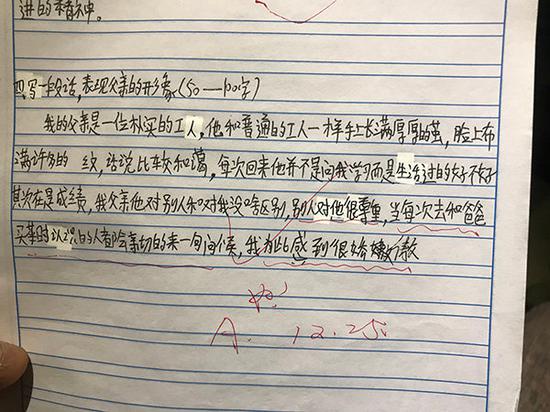 进的精神。
四.写一段话,表现父亲的形象(50—100字)
我的父亲是一位朴实的工人,他和普通的工人一样手上长满厚厚的茧,脸上布
满许多的 纹,话说比较和蔼,每次回来他并不是问我学习而是生活过的好不好
其次在是成绩,我父亲他对别人和对我没啥区别,别人对他很尊重,当每次去和爸爸
买菜时 的人都会亲切的来一句问候,我为此感到很骄傲
A. 12.25.